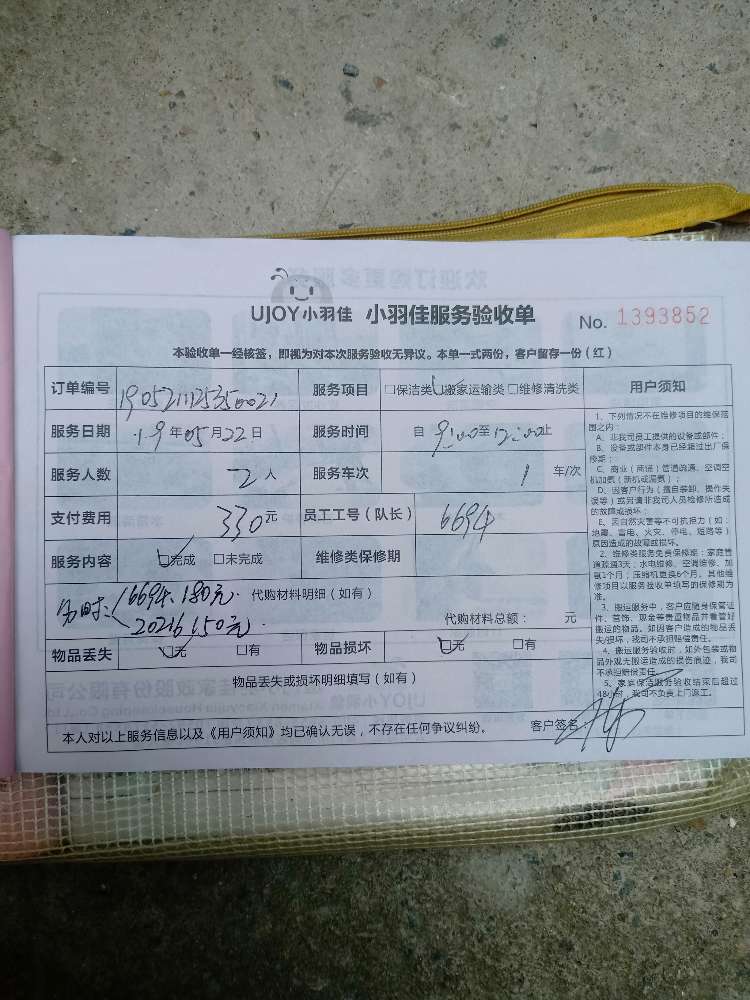 UJOY小羽佳 小羽佳服务验收单 No. 1393852
本验收单一经核签，即视为对本次服务验收无异议。本单一式两份，客户留存一份（红）
订单编号 1905211125350021 服务项目 □保洁类 ☑搬家运输类 □维修清洗类 用户须知
服务日期 19年05月22日 服务时间 自9:00至12:00止
服务人数 2人 服务车次 1 车/次
支付费用 330元 员工工号（队长） 6694
服务内容 ☑完成 □未完成 维修类保修期
6694. 180元. 代购材料明细（如有）
20216 150元. 代购材料总额： 元
物品丢失 ☑无 □有 物品损坏 ☑无 □有
物品丢失或损坏明细填写（如有）
本人对以上服务信息以及《用户须知》均已确认无误，不存在任何争议纠纷。 客户签名：
1、下列情况不在维修项目的维保范
围之内：
A、非我司员工提供的设备或部件；
B、设备或部件本身已经超过出厂保
修期；
C、商业（商铺）管道疏通、空调空
机加氨（新机或漏氨）；
D、因客户行为（擅自装卸、操作失
误等）或另请非我司人员检修所造成
的故障或损坏；
E、因自然灾害等不可抗拒力（如：
地震、雷电、火灾、停电、短路等）
原因造成的故障或损坏。
2、维修类服务免费保修期：家庭管
道疏通3天；水电维修、空调维修、加
氨1个月；压缩机更换6个月。其他维
修项目以服务验收单填写的保修期为
准。
3、搬运服务中，客户应随身保管证
件、首饰、现金等贵重物品并看管好
搬运的物品。如因客户造成的物品丢
失/损坏，我司不承担赔偿责任。
4、搬运服务验收前，如外包装或物
品外观无搬运造成的损伤痕迹，我司
不承担赔偿责任。
5、家庭保洁服务验收结束后超过
48小时，我司不负责上门返工。